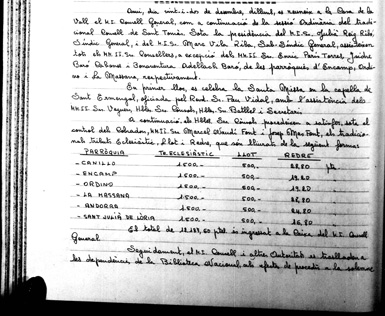 Avui, dia vint-i-dos de desembre, dilluns, es reuneix a la Casa de la
Vall el M.I. Consell General, com a continuació de la sessió Ordinària del tradi-
cional Consell de Sant Tomàs. Sota la presidència del M.I.Sr. Julià Reig Riba,
Síndic General, i del M.I.Sr. Marc Vila Riba, Sub-Síndic General, assisteixen
tots els M.M.I.I. Srs. Consellers, a excepció dels M.M.I.I. Srs. Enric Paris Torres, Isidre
Baró Cabanes i Bonaventura Adellach Baró, de les parròquies d'Encamp, Ordi-
no i La Massana, respectivament.
En primer lloc, es celebra la Santa Missa en la capella de
Sant Ermengol, oficiada pel Rnd. Sr. Pau Vidal, amb l'assistència dels
M.M.I.I. Srs. Veguers, Hble. Sr. Hble. Sr. Batlles i Secretari.
A continuació, els Hbles. Srs. procedeixen a satisfer, sota el
control del M.M.I.I. Srs. Marcel i Josep Mas Font, els tradicio-
nals tributs Eclesiàstic, Llot i Redre, que són lliurats de la següent forma:
PARRÒQUIA T. ECLESIÀSTIC LLOT REDRE
- CANILLO 1500,- 500,- 22,80 pts
- ENCAMP 1.500,- 500,- 19,20
- ORDINO 1.500,- 500,- 19,20
- LA MASSANA 1.500,- 500,- 22,80
- ANDORRA 1.500,- 500,-
- SANT JULIÀ DE LÒRIA 1.500,- 500,-
El total de pts. és ingressat a la Caixa del M.I. Consell
General.
Seguidament, el M.I. Consell i altres Autoritats es traslladen a
les dependències de la Biblioteca Nacional als efectes de procedir a la solemne